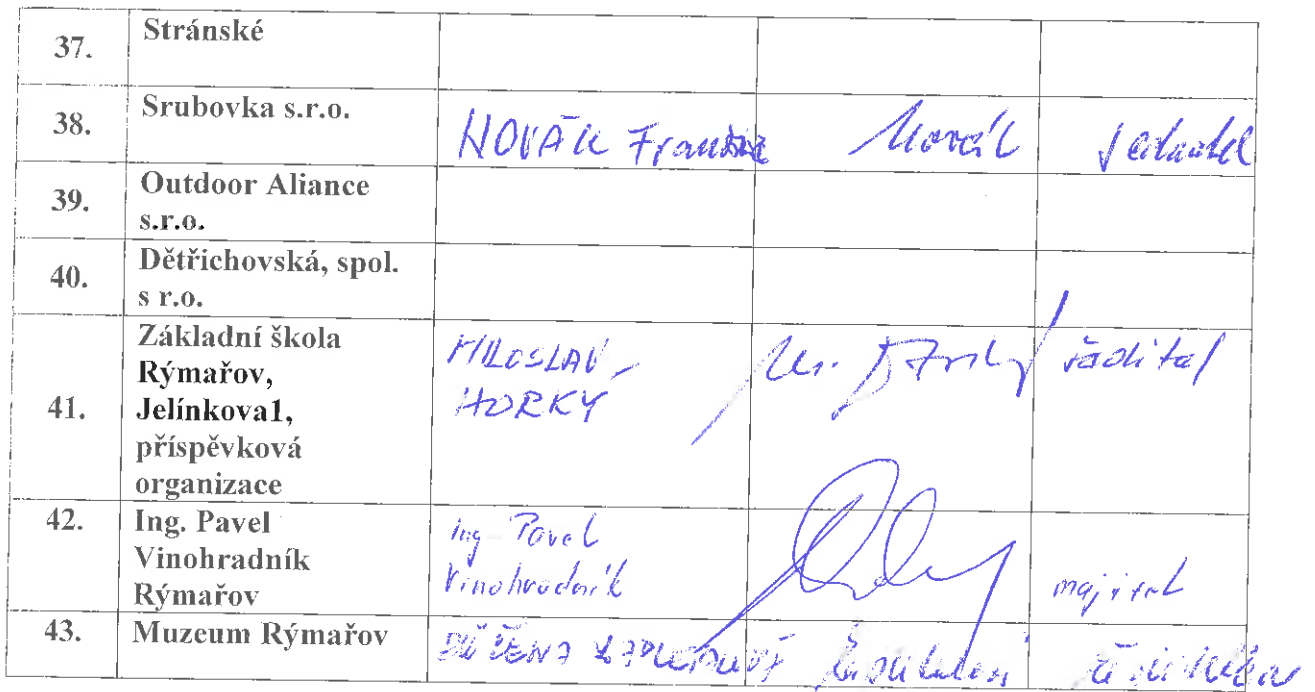 37. Stránské
38. Srubovka s.r.o. NOVÁK František Novák jednatel
39. Outdoor Aliance
s.r.o.
40. Dětřichovská, spol.
s r.o.
41. Základní škola
Rýmařov,
Jelínkova1,
příspěvková
organizace
MILOSLAV
HORKÝ
ředitel
42. Ing. Pavel
Vinohradník
Rýmařov
Ing Pavel
Vinohradník
majitel
43. Muzeum Rýmařov RŮŽENA ředitelka